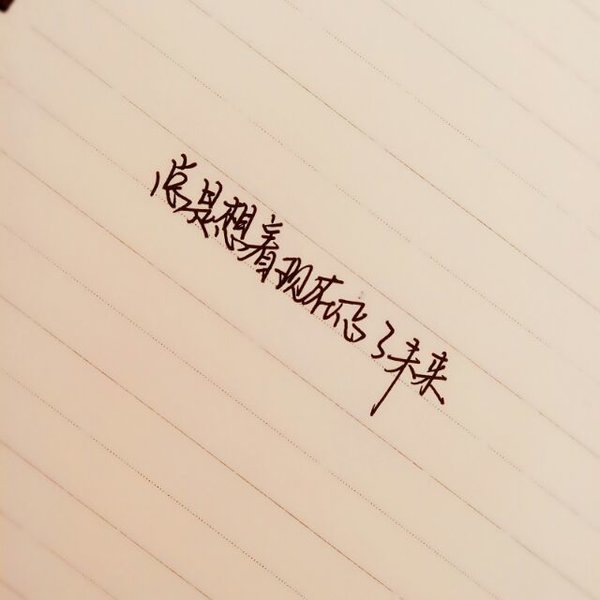 总是想着现在忘了未来